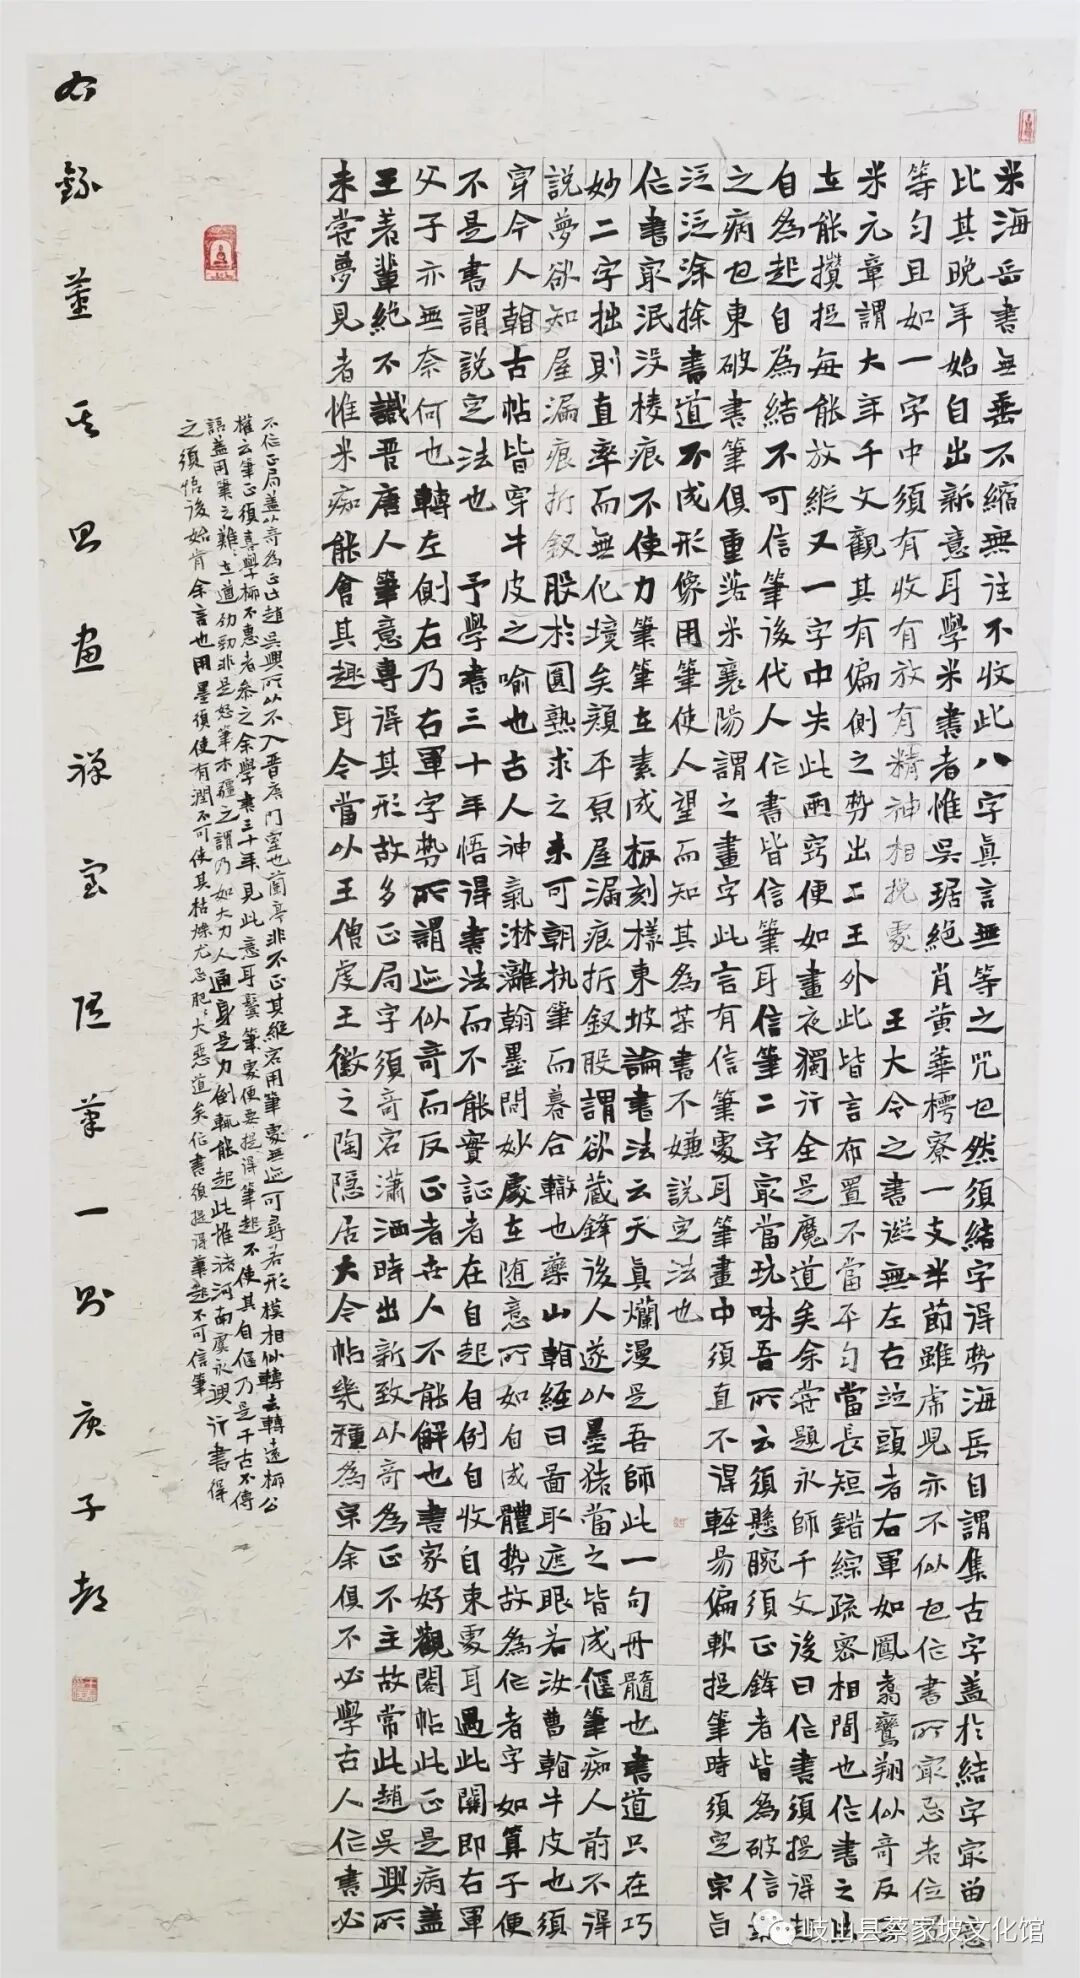 米海岳書無垂不縮無往不收此八字真言無等之咒也然須結字得勢海岳自謂集古字蓋於結字最留意
比其晚年始自出新意耳學米書者惟吳琚絕肖黃華樗寮一支半節雖虎兒亦不似也作書所最忌者位
等勻且如一字中須有收有放有精神相挽處 王大令之書從無左右並頭者右軍如鳳翥鸞翔似奇反
米元章謂大年千文觀其有偏側之勢出二王外此皆言布置不當平勻當長短錯綜疏密相間也作書之
在能攢捉每能放縱又一字中失此兩竅便如晝夜獨行全是魔道矣余嘗題永師千文後曰作書須提得起
自為起自為結不可信筆後代人作書皆信筆耳信筆二字最當玩味吾所云須懸腕須正鋒者皆為破信筆
之病也東破書筆俱重落米襄陽謂之畫字此言有信筆處耳筆畫中須直不得輕易偏軟捉筆時須定宗旨
泛泛涂捺書道不成形像用筆使人望而知其為某書不嫌說定法也
作書最泯沒棱痕不使力筆筆在素成板刻樣東坡論書法云天真爛漫是吾師此一句丹髓也書道只在巧
妙二字拙則直率而無化境矣顏平原屋漏痕折釵股謂欲藏鋒後人遂以墨豬當之皆成偃筆痴人前不得
說夢欲知屋漏痕折釵股於圓熟求之未可朝執筆而暮合轍也藥山翰經曰畐取遮眼若汝曹翰牛皮也須
穿今人翰古帖皆穿牛皮之喻也古人神氣淋漓翰墨間妙處在随意所如自成體勢故為作者字如算子便
不是書謂說定法也 予學書三十年悟得書法而不能實証者在自起自倒自收自束處耳過此關即右軍
父子亦無奈何也轉左側右乃右軍字勢所謂迹似奇而反正者世人不能解也書家好觀閣帖此正是病蓋
王著輩絕不識晉唐人筆意專得其形故多正局字須奇宕瀟洒時出新致以奇為正不主故常此趙吳興所
未嘗夢見者惟米痴能會其趣耳今當以王僧虔王徽之陶隱居大令帖幾種為宗余俱不必學古人作書必
不作正局蓋以奇為正此趙吳興所以不入晉唐門室也蘭亭非不正其縱宕用筆處無迹可尋若形模相似轉去轉遠柳公
權云筆正須善學柳下惠者參之余學書三十年見此意耳髮筆處便要提得筆起不使其自偃乃是千古不傳
語蓋用筆之難難在遒勁勁非是怒筆木彊之謂乃如大力人通身是力倒輒能起此惟褚河南虞永興行書得
之須悟後始肯余言也用墨須使有潤不可使其枯燥尤忌肥肥大惡道矣作書須提得筆起不可信筆
右錄董其昌畫禪室随筆一則庚子
岐山县蔡家坡文化馆